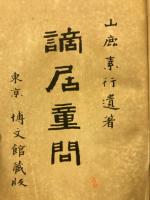 山鹿素行遺著
謫居童問
東京 博文館蔵版